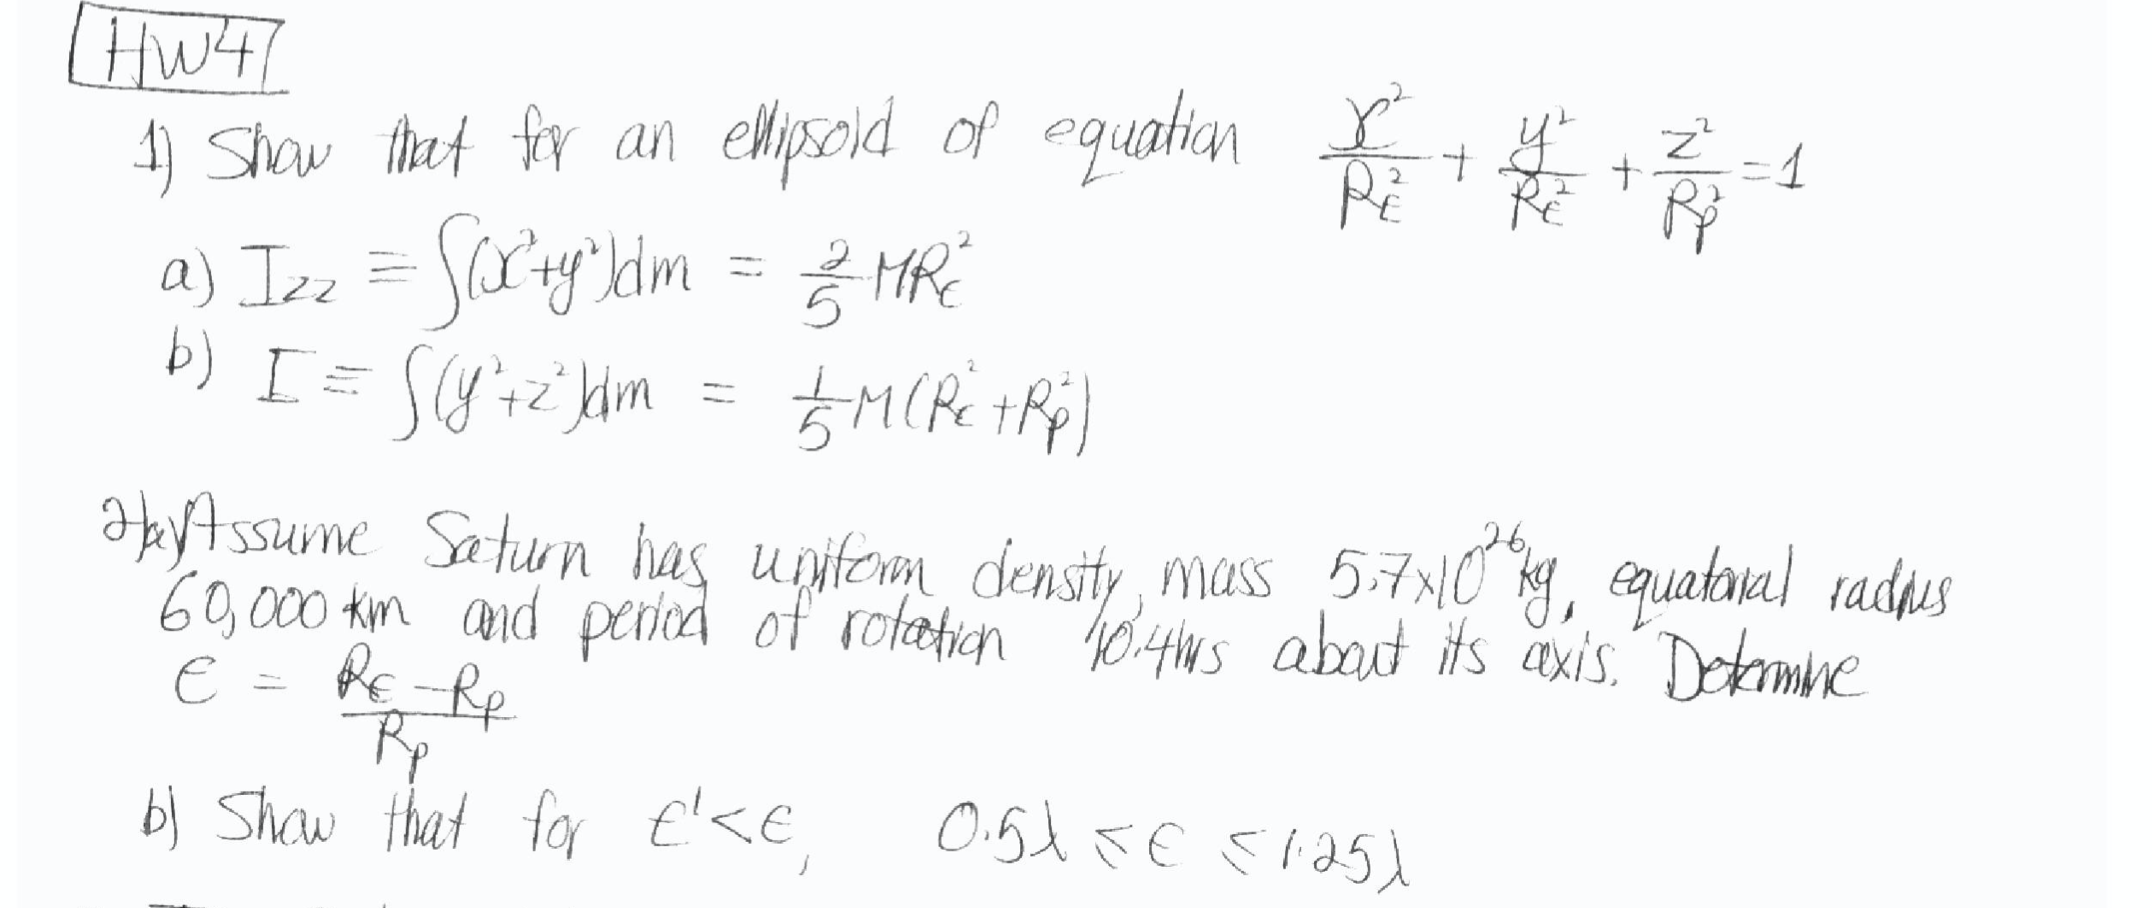 HW4
1) Show that for an ellipsoid of equation x²/R_E² + y²/R_E² + z²/R_p² = 1
a) I_zz ≡ ∫(x²+y²)dm = 2/5 MR_E²
b) I ≡ ∫(y²+z²)dm = 1/5 M(R_E²+R_p²)
2)a) Assume Saturn has uniform density, mass 5.7x10²⁶kg, equatorial radius
60,000 km and period of rotation 10.4hrs about its axis. Determine
ϵ = (R_E - R_p)/R_p
b) Show that for ϵ'<ϵ, 0.5λ ≤ ϵ ≤ 1.25λ